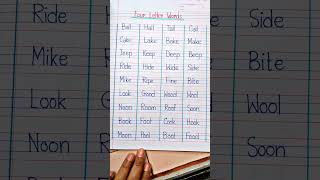 Four Letter Words
Ball Hall Tall Call
Cake Lake Bake Make
Jeep Keep Deep Beep
Ride Hide Wide Side
Mike Ripe Fine Bite
Look Good Wood Wool
Noon Room Roof Soon
Book Foot Cook Hook
Moon Pool Boot Food
Ride Side
Mike Bite
Look Wool
Noon Soon